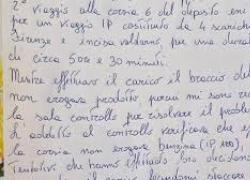 2° viaggio alla corsia 6 del deposito eni
per un viaggio IP costituito da 4 scarichi
Firenze e incisa valdarno, per una durata
di circa 5 ore e 30 minuti.
Mentre effettuavo il carico il braccio del
non erogava prodotto, perciò mi sono
la sala controllo per risolvere il proble
L'addetto al controllo verificava che
la corsia non erogava benzina (IP 100),
tentativi che hanno effettuato,